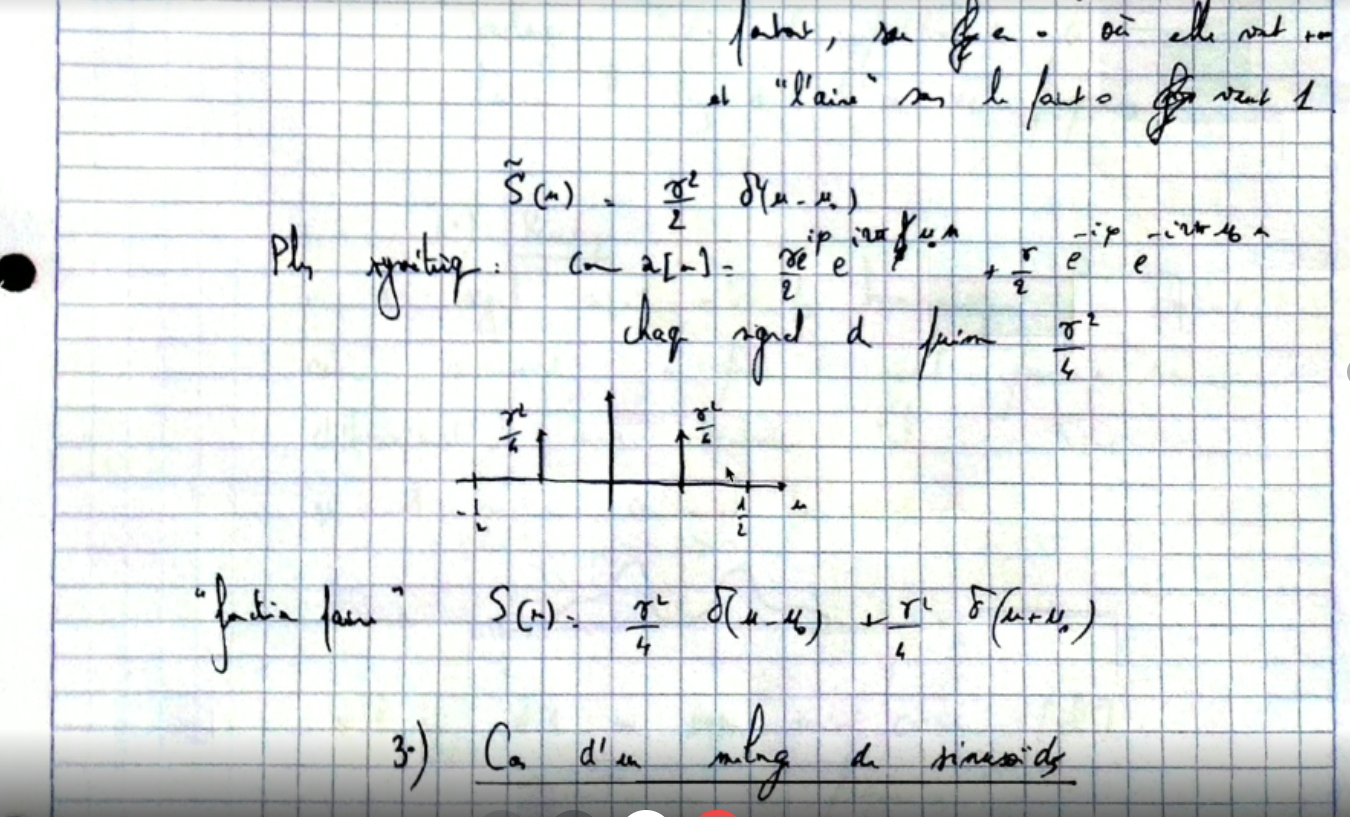 partout, sauf en 0 où elle vaut +∞
et "l'aire" sous le point 0 vaut 1
S̃(ν) = γ²/2 δ(ν - ν₀)
Plus symétrique : Car x[n] = γ/2 e^{iφ} e^{i2πν₀n} + γ/2 e^{-iφ} e^{-i2πν₀n}
chaque signal de puissance γ²/4
γ²/4 γ²/4
-1/2 1/2 ν
"fonction paire" S(ν) = γ²/4 δ(ν - ν₀) + γ²/4 δ(ν + ν₀)
3°) Cas d'un mélange de sinusoïdes